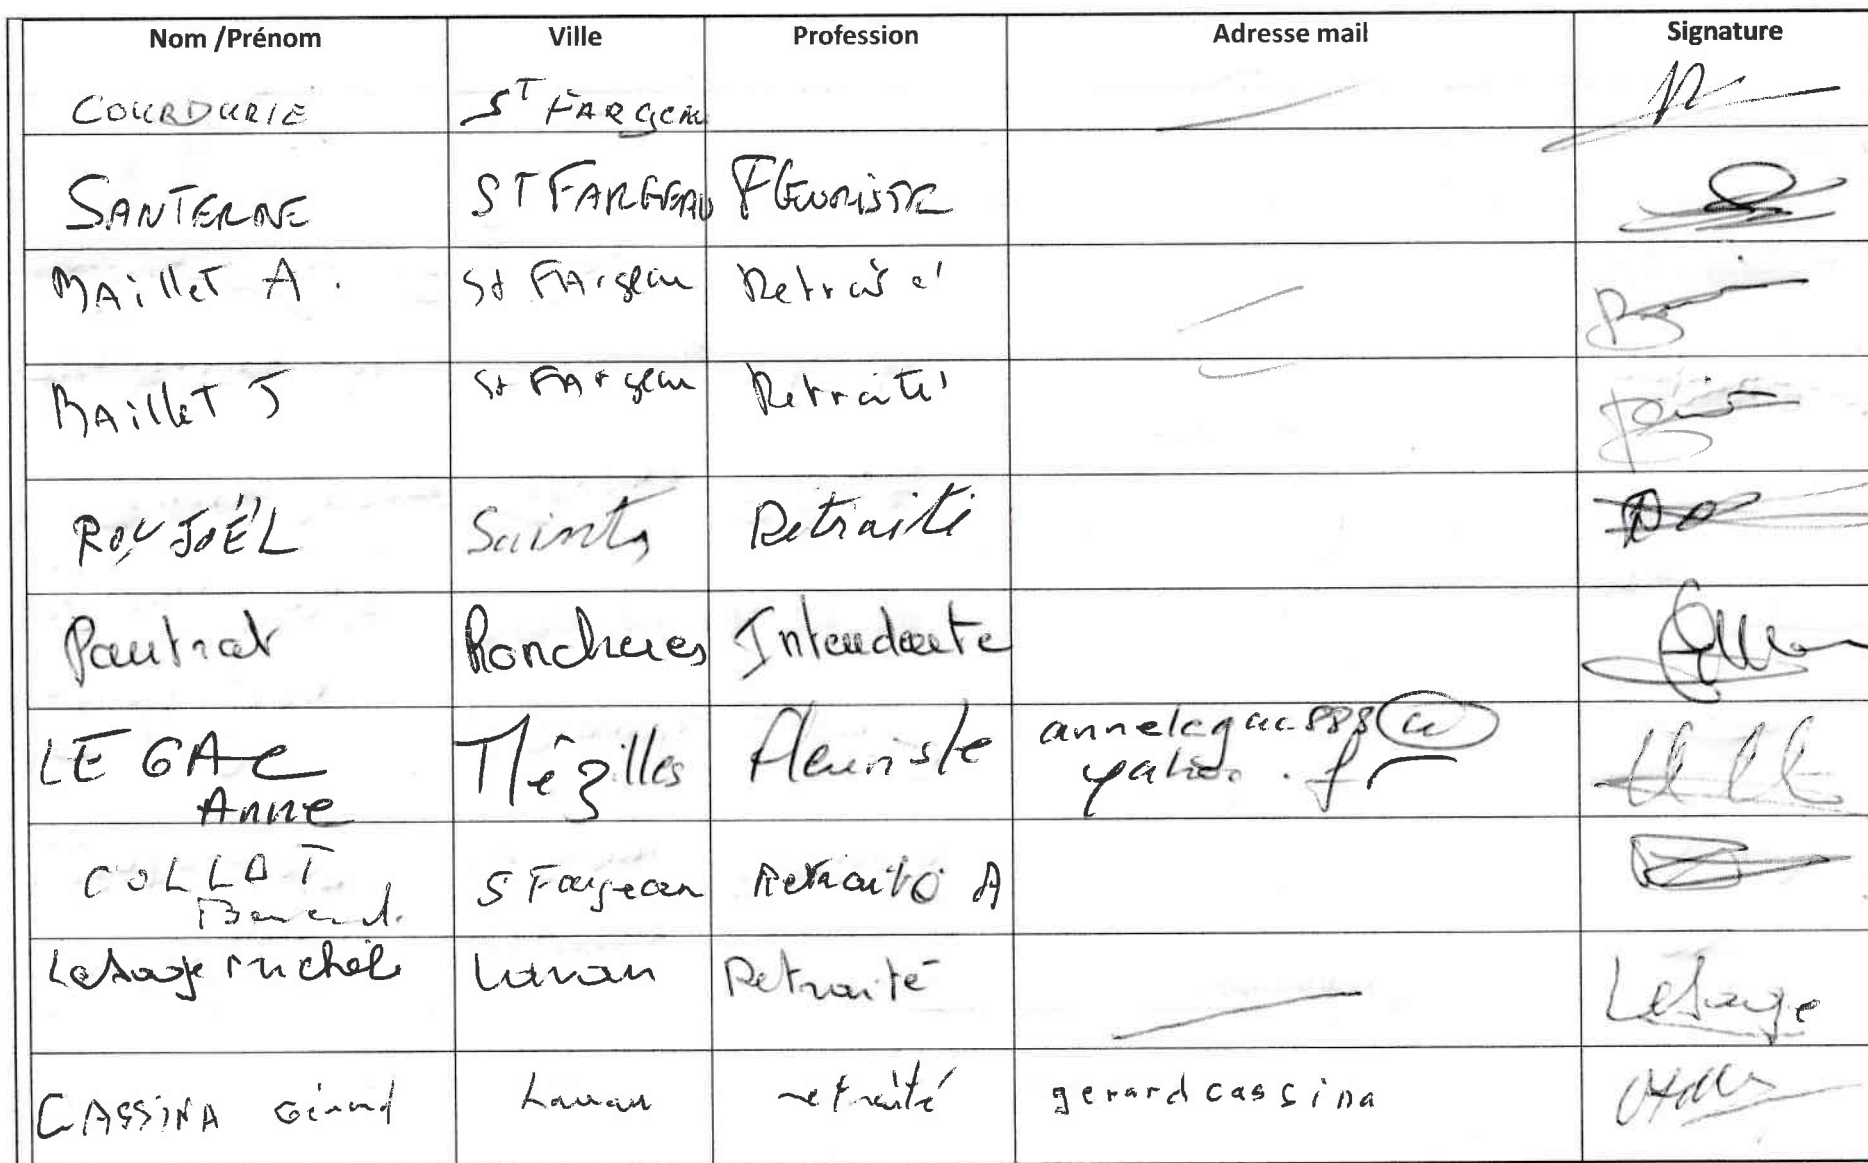 Nom /Prénom Ville Profession Adresse mail Signature
COURDURIE ST FARgeau
SANTERNE ST FARGEAU FLEURISTE
MAilleT A. St FArgeau Retraité
MAilleT J St FArgeau Retraité
ROY JOËL Saints Retraité
Pautrat Ronchères Intendante
LE GAC Mézilles fleuriste annelegac888@
Anne yahoo.fr
COLLOT S Fargeau Retraité A
Bernard.
Lesage Michel Lavau Retraité Lesage
CASSINA Gérard Lavau retraité gerardcassina